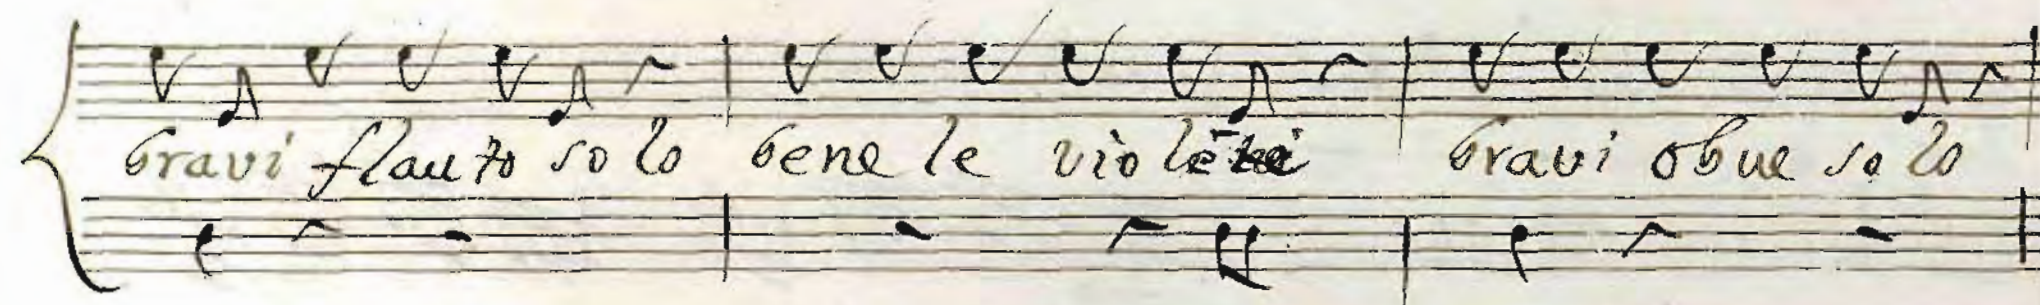 bravi flauto solo bene le viole bravi obue solo